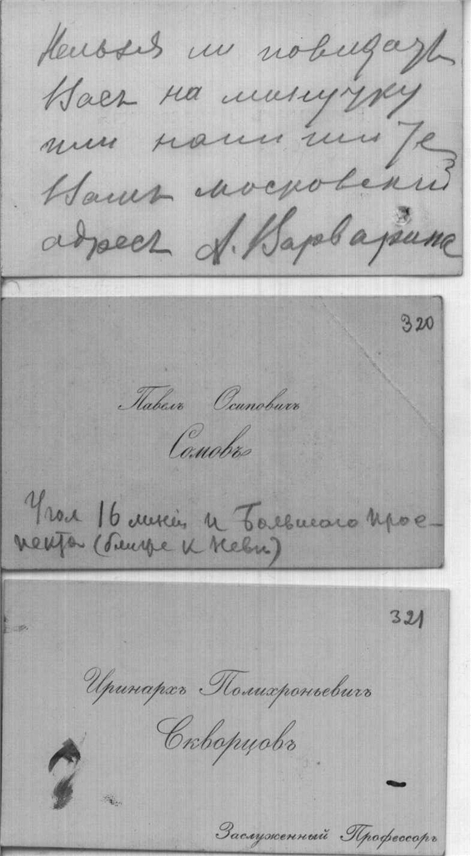 Нельзя ли повидать
Васъ на минутку
или напишите
Вашъ московскій
адресъ А. Варварина
320
Павелъ Осиповичъ
Сомовъ
Угол 16 линіи и Большого прос-
пекта (ближе к Неве)
321
Иринархъ Полихроньевичъ
Скворцовъ
Заслуженный Профессоръ